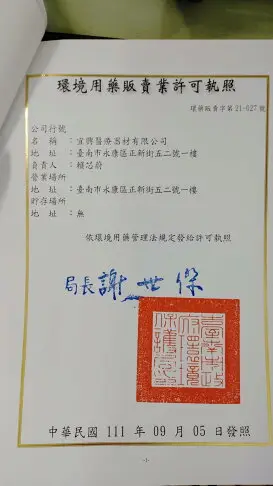 環境用藥販賣業許可執照
環藥販賣字第21-627號
公司行號
名　稱：宜興醫療器材有限公司
地　址：臺南市永康區正新街五二號一樓
負責人：賴芯蔚
營業場所
地　址：臺南市永康區正新街五二號一樓
貯存場所
地　址：無
依環境用藥管理法規定發給許可執照
局長謝世傑
中華民國 111 年 09 月 05 日發照
-3-